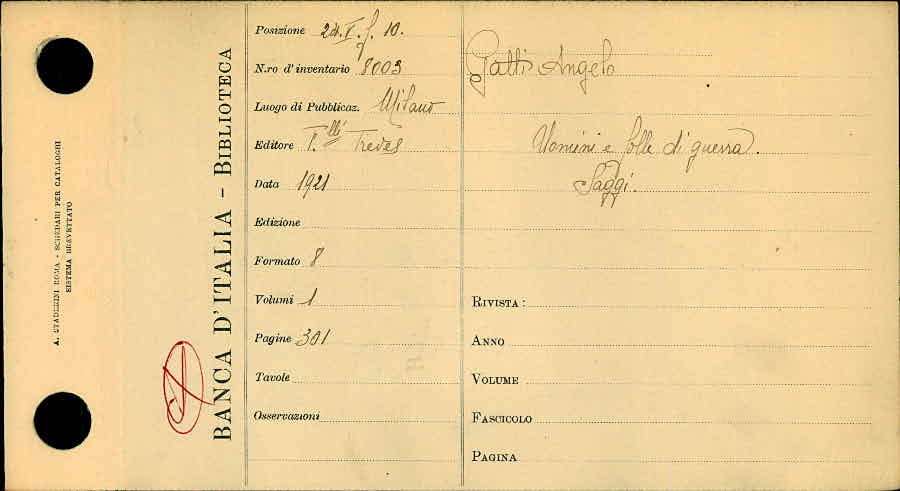 A. STADERINI ROMA - SCHEDARI PER CATALOGHI
SISTEMA BREVETTATO
BANCA D'ITALIA - BIBLIOTECA
Posizione 24.V.f. 10.
N.ro d'inventario 8003
Luogo di Pubblicaz. Milano
Editore F.lli Treves
Data 1921
Edizione
Formato 8
Volumi 1
Pagine 301
Tavole
Osservazioni
Gatti Angelo
Uomini e folle di guerra.
Saggi.
RIVISTA:
ANNO
VOLUME
FASCICOLO
PAGINA